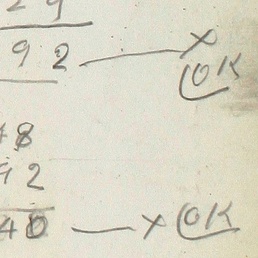 29
92 — x
OK
48
92
40 — x OK